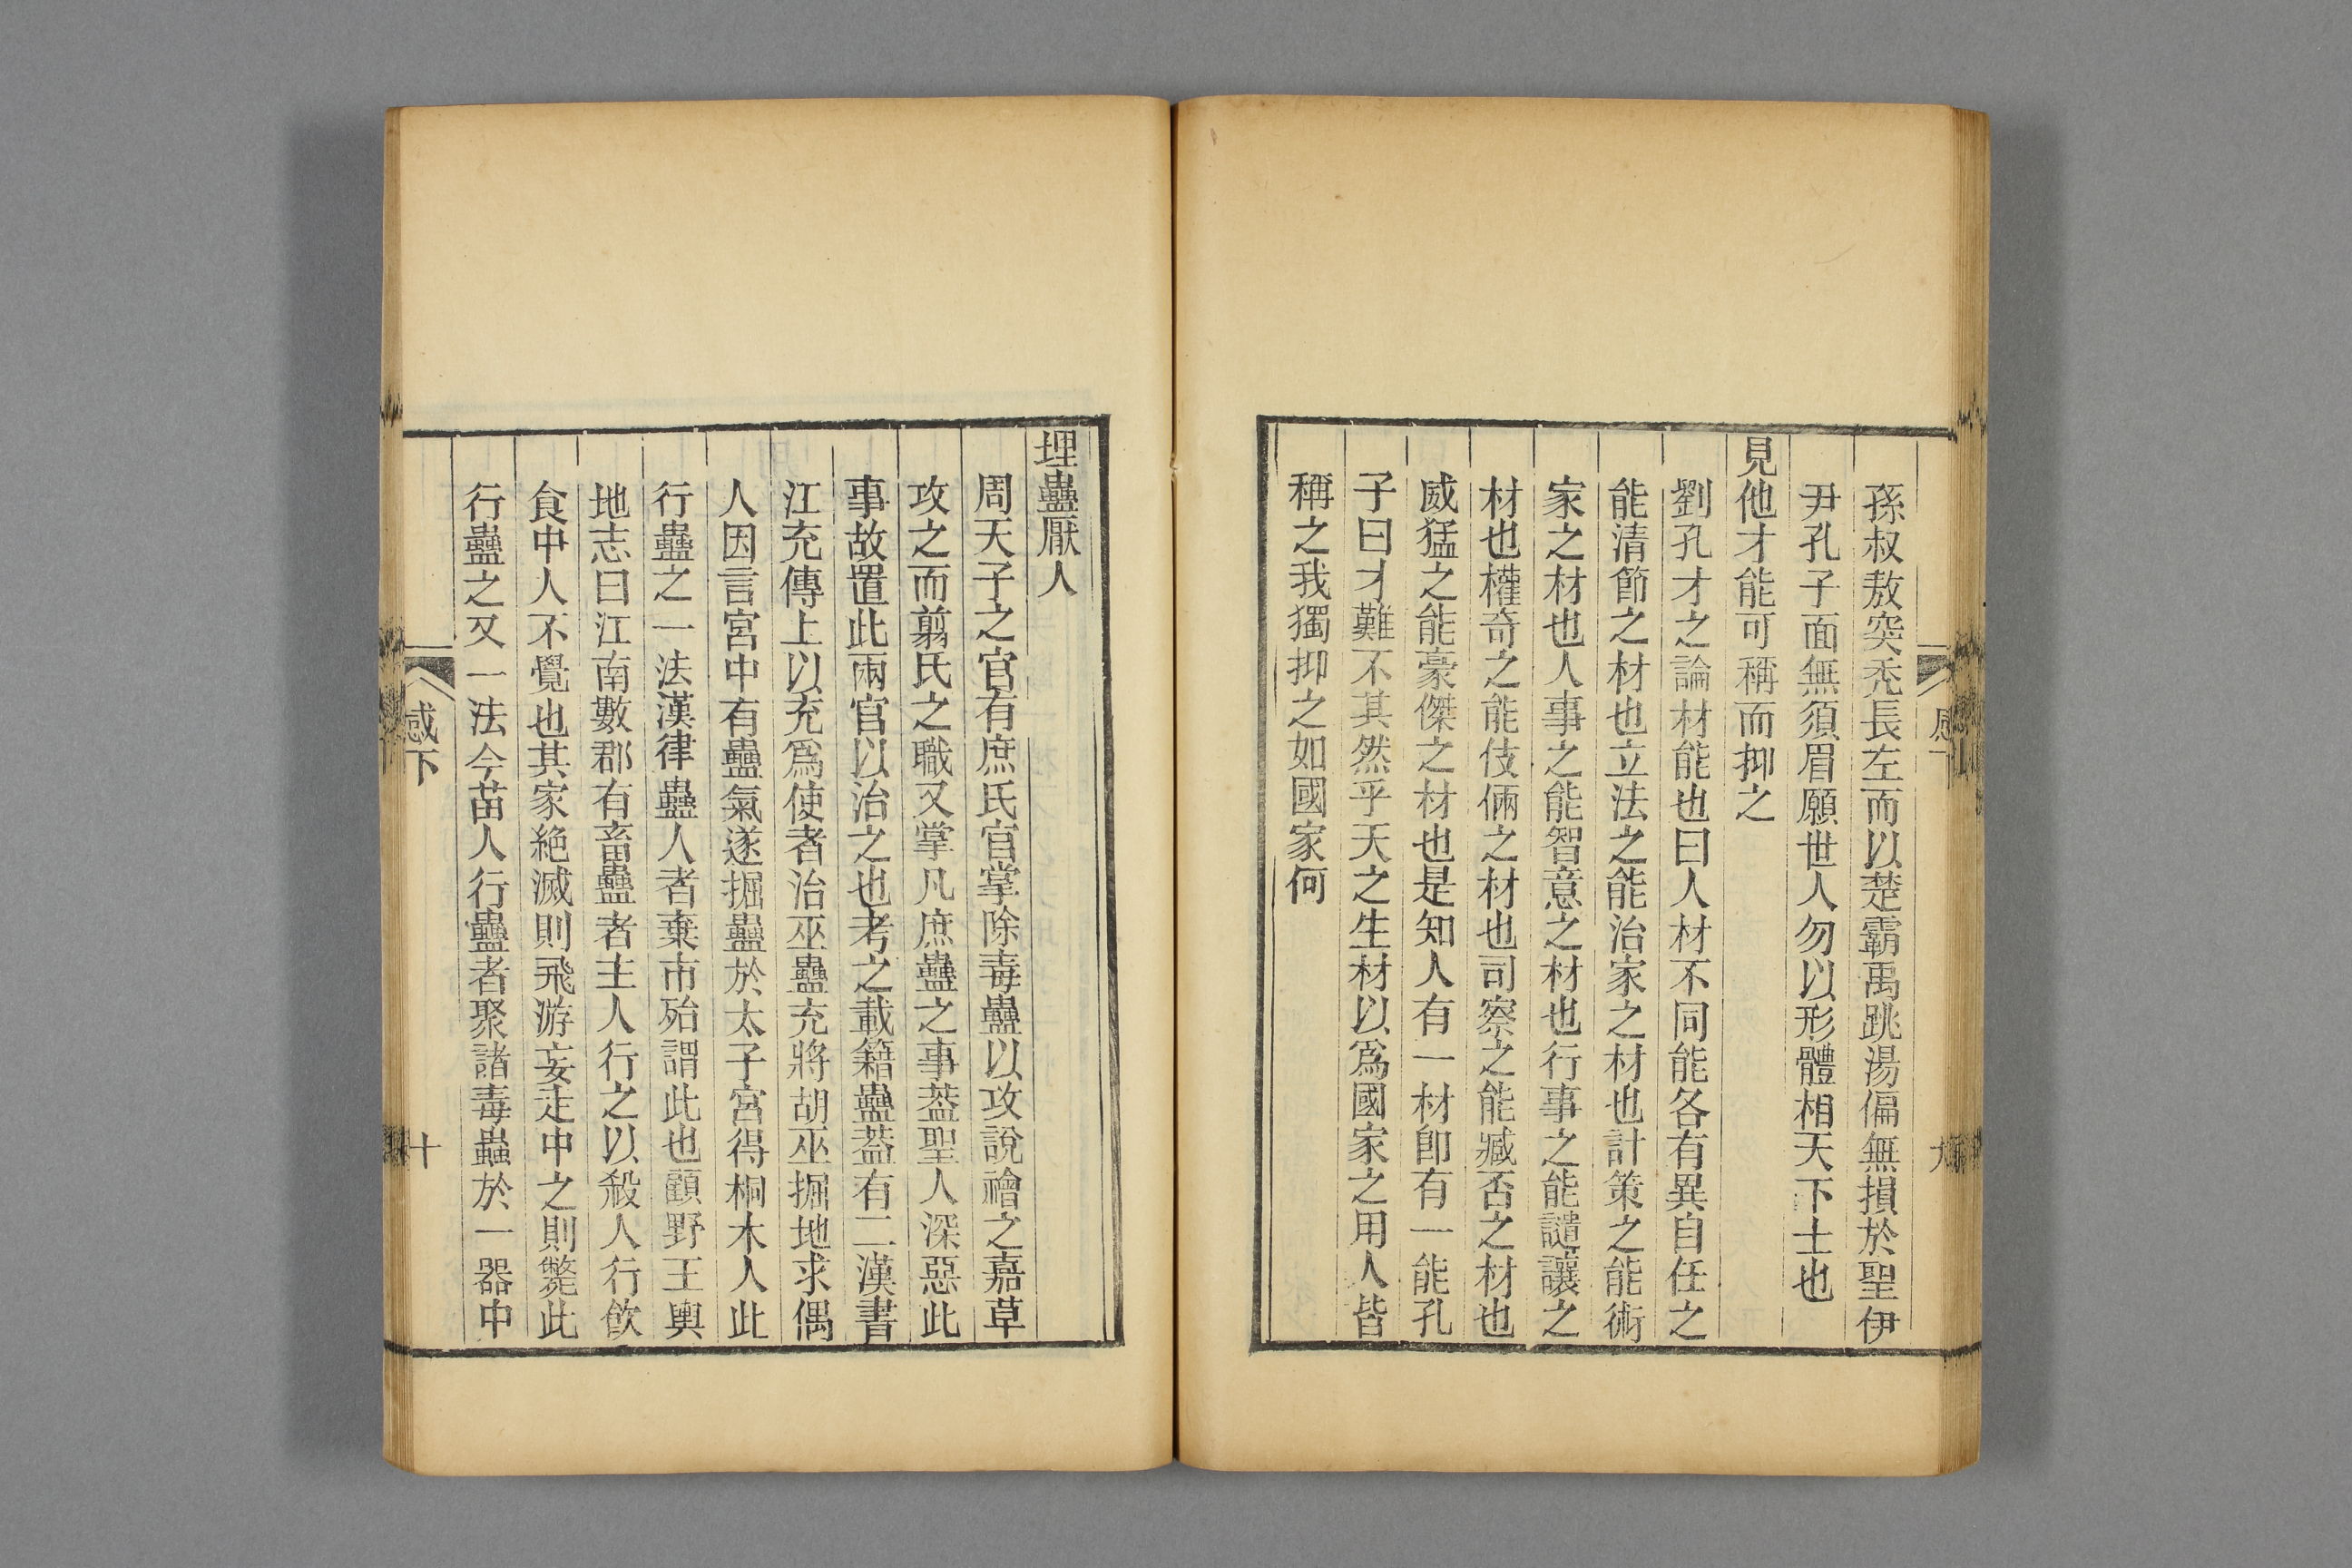 孫叔敖突禿長左而以楚霸禹跳湯偏無損於聖伊
尹孔子面無須眉願世人勿以形體相天下士也
見他才能可稱而抑之
劉孔才之論材能也曰人材不同能各有異自任之
能清節之材也立法之能治家之材也計策之能術
家之材也人事之能智意之材也行事之能譴讓之
材也權奇之能伎倆之材也司察之能臧否之材也
威猛之能豪傑之材也是知人有一材卽有一能孔
子曰才難不其然乎天之生材以爲國家之用人皆
稱之我獨抑之如國家何
埋蠱厭人
周天子之官有庶氏官掌除毒蠱以攻說禬之嘉草
攻之而翦氏之職又掌凡庶蠱之事葢聖人深惡此
事故置此兩官以治之也考之載籍蠱葢有二漢書
江充傳上以充爲使者治巫蠱充將胡巫掘地求偶
人因言宮中有蠱氣遂掘蠱於太子宮得桐木人此
行蠱之一法漢律蠱人者棄市殆謂此也顧野王輿
地志曰江南數郡有畜蠱者主人行之以殺人行飮
食中人不覺也其家絶滅則飛游妄走中之則斃此
行蠱之又一法今苗人行蠱者聚諸毒蟲於一器中
感下
十